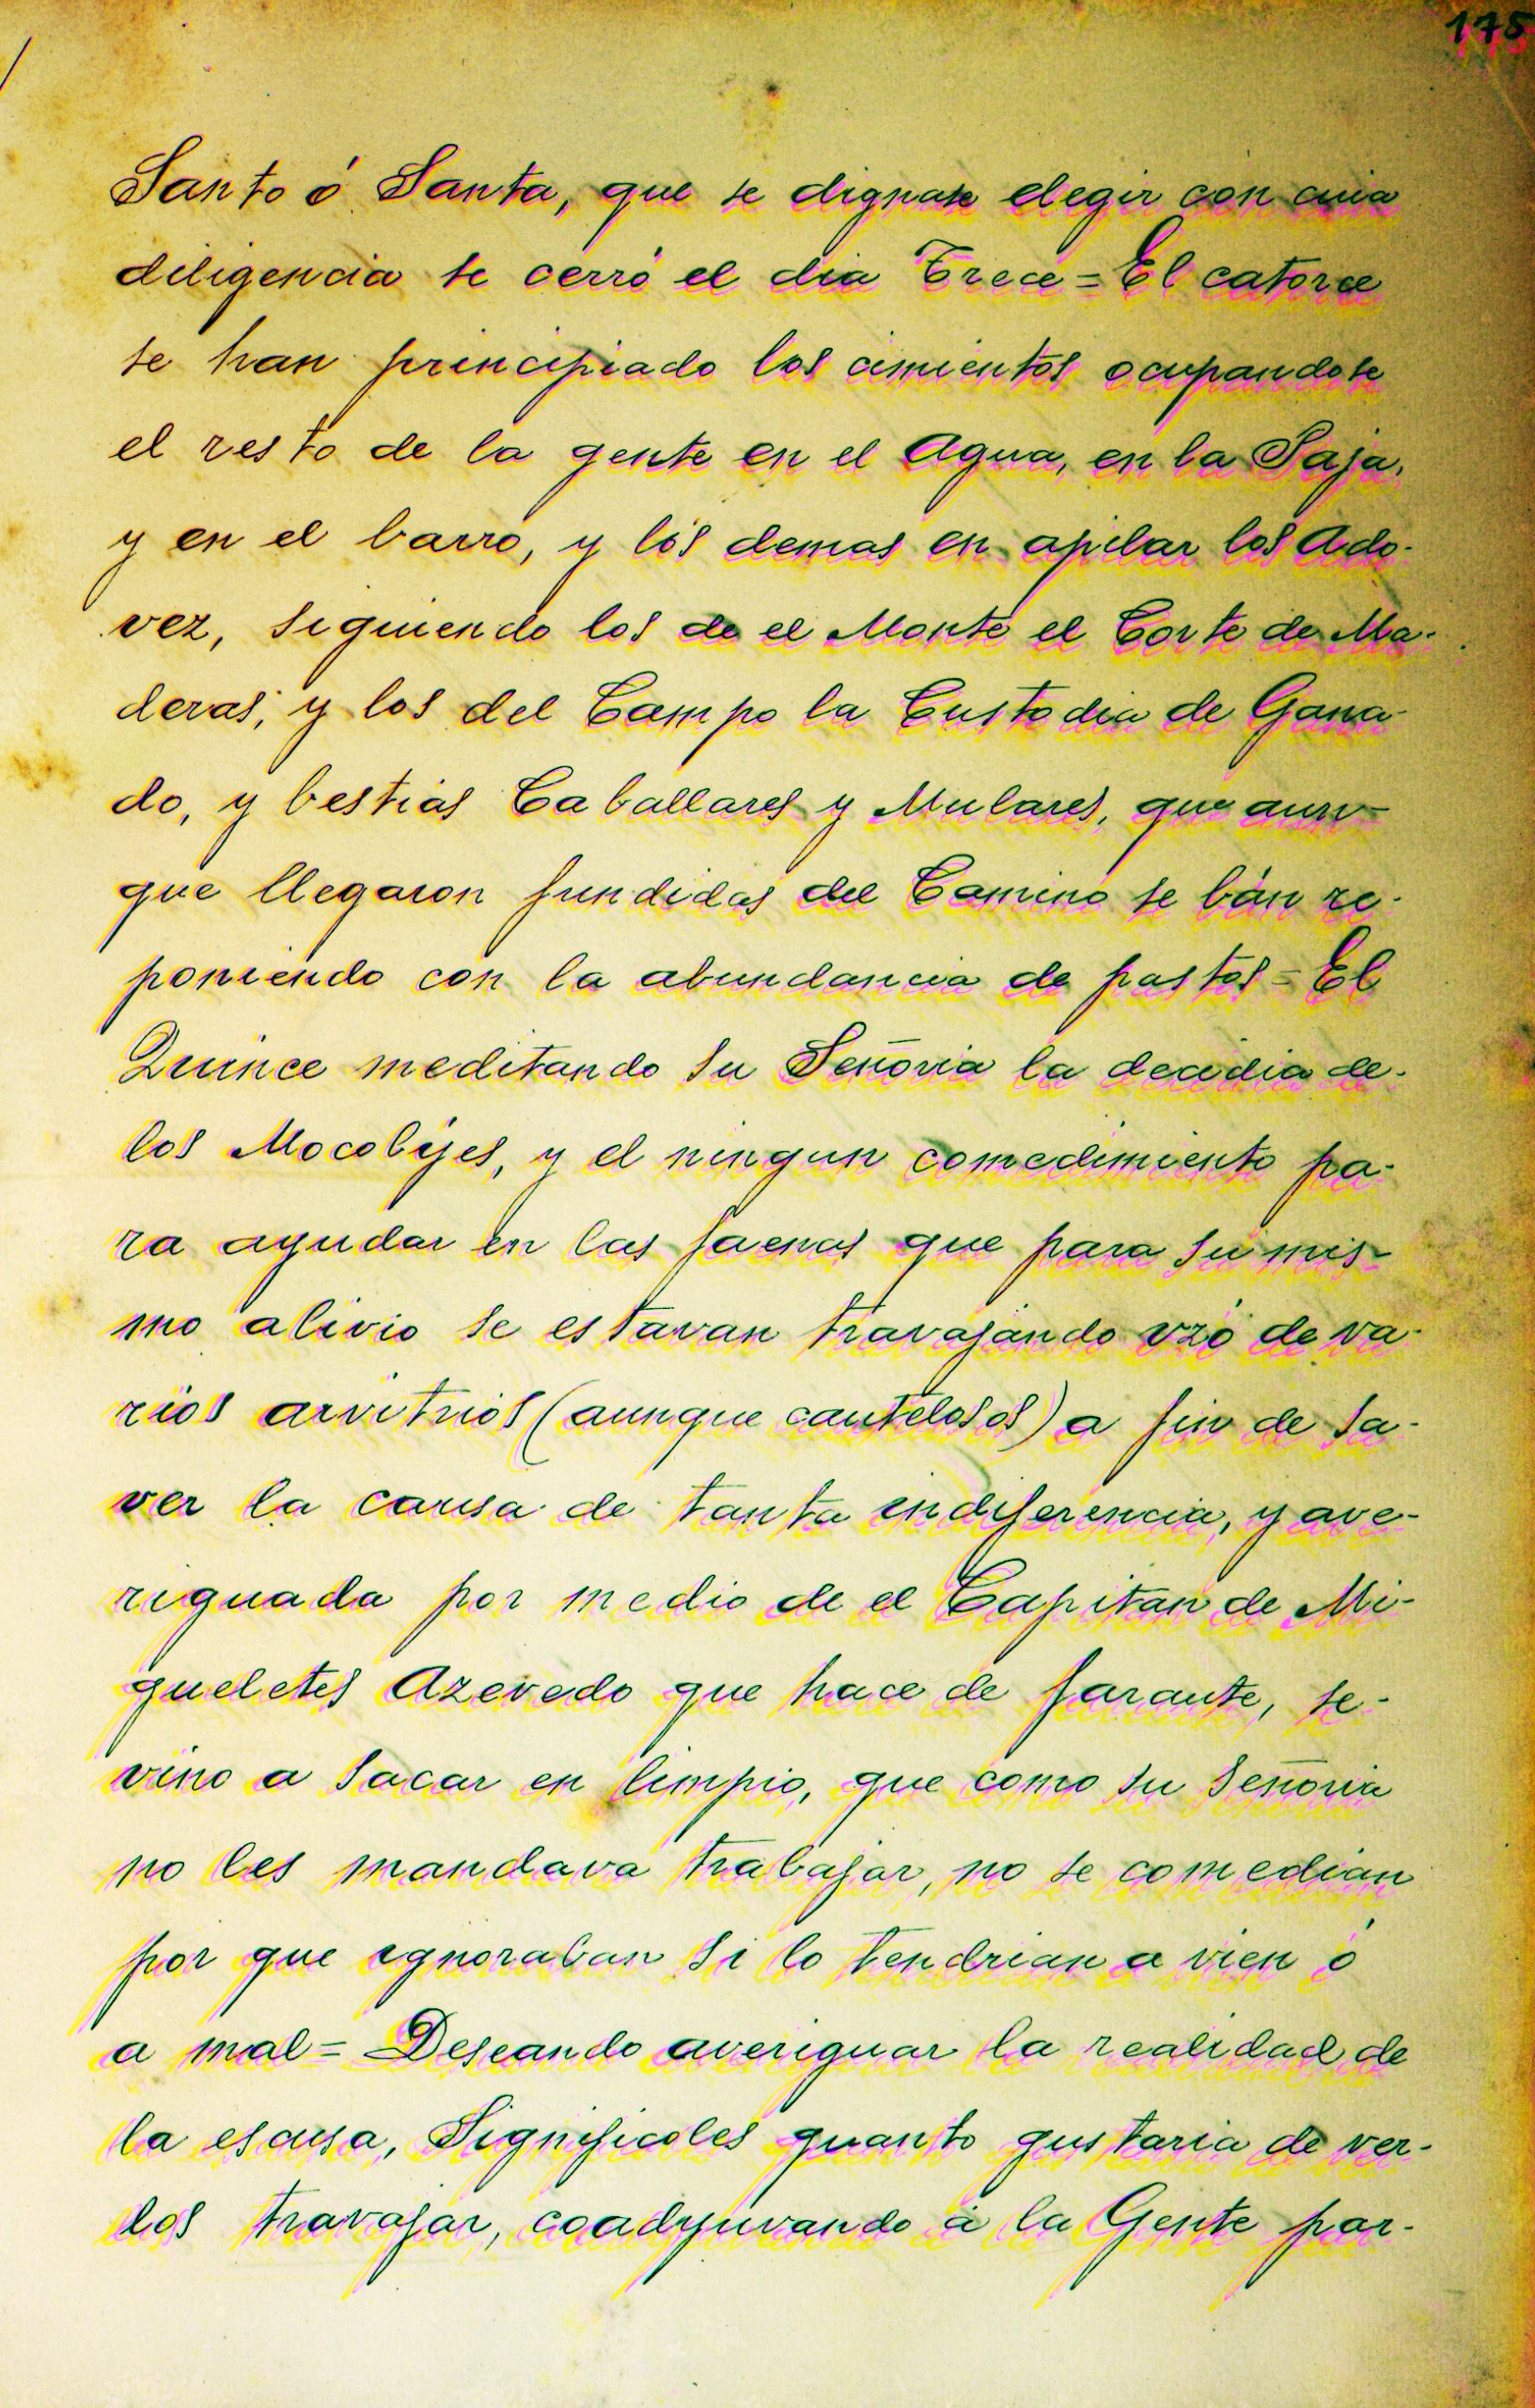 175
Santo ó Santa, que se dignase elegir con cuia
diligencia se cerró el dia Trece = El catorce
se han principiado los cimientos ocupandose
el resto de la gente en el Agua, en la Paja,
y en el barro, y los demas en apilar los Ado-
vez, siguiendo los de el Monte el Corte de Ma-
deras, y los del Campo la Custodia de Gana-
do, y bestias Caballares y Mulares, que aun-
que llegaron fundidas del Camino se bán re-
poniendo con la abundancia de pastos = El
Quince meditando su Señoria la decidia de-
los Mocobyes, y el ningun comedimiento pa-
ra ayudar en las faenas que para su mis-
mo alivio se estavan travajando vzó de va-
rios arvitrios (aunque cautelosos) a fin de sa-
ver la causa de tanta indiferencia, y ave-
riguada por medio de el Capitan de Mi-
queletes Azevedo que hace de farante, se-
vino a sacar en limpio, que como su Señoria
no les mandava trabajar, no se comedian
por que ignoraban si lo tendrian a vien ó
a mal = Deseando averiguar la realidad de
la escusa, Significoles quanto gustaria de ver-
los travajar, coadyuvando á la Gente par-